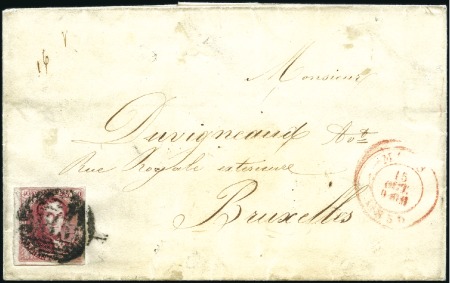 Monsieur
Duvigneaud Avt
Rue Royale exterieure
Bruxelles
15